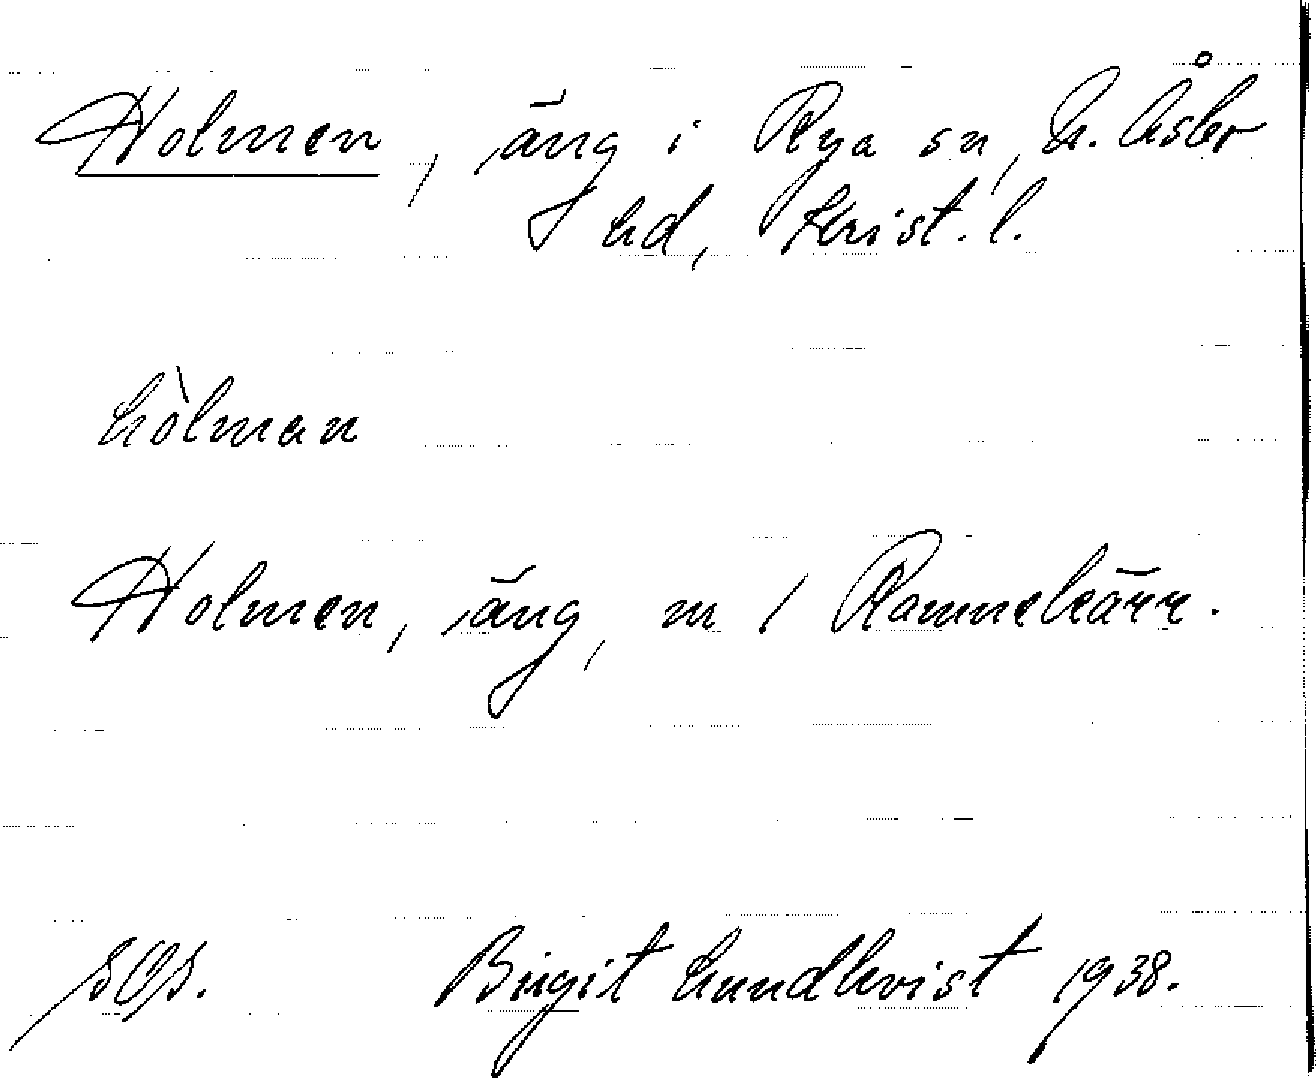 Holmen, äng i Rya sn, N. Åsbo
hd, Krist. l.
hòlman
Holmen, äng, n / Ramnekärr.
SOS. Birgit Lundkvist 1938.